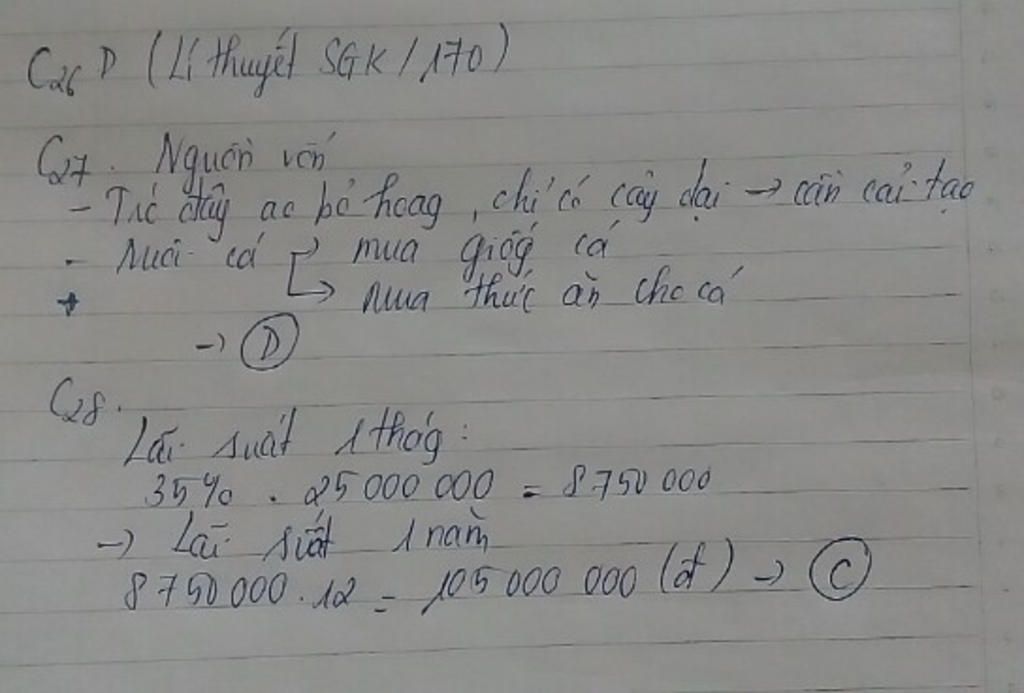 C26 D (Lí thuyết SGK/170)
C27. Nguồn vốn
- Trc đây ao bỏ hoag, chỉ có cây dại → cần cải tạo
- Nuôi cá → mua giốg cá
+ → mua thức ăn cho cá
→ D
C28.
Lãi suất 1 thág:
35% . 25 000 000 = 8 750 000
→ Lãi suất 1 năm
8 750 000 . 12 = 105 000 000 (đ) → C